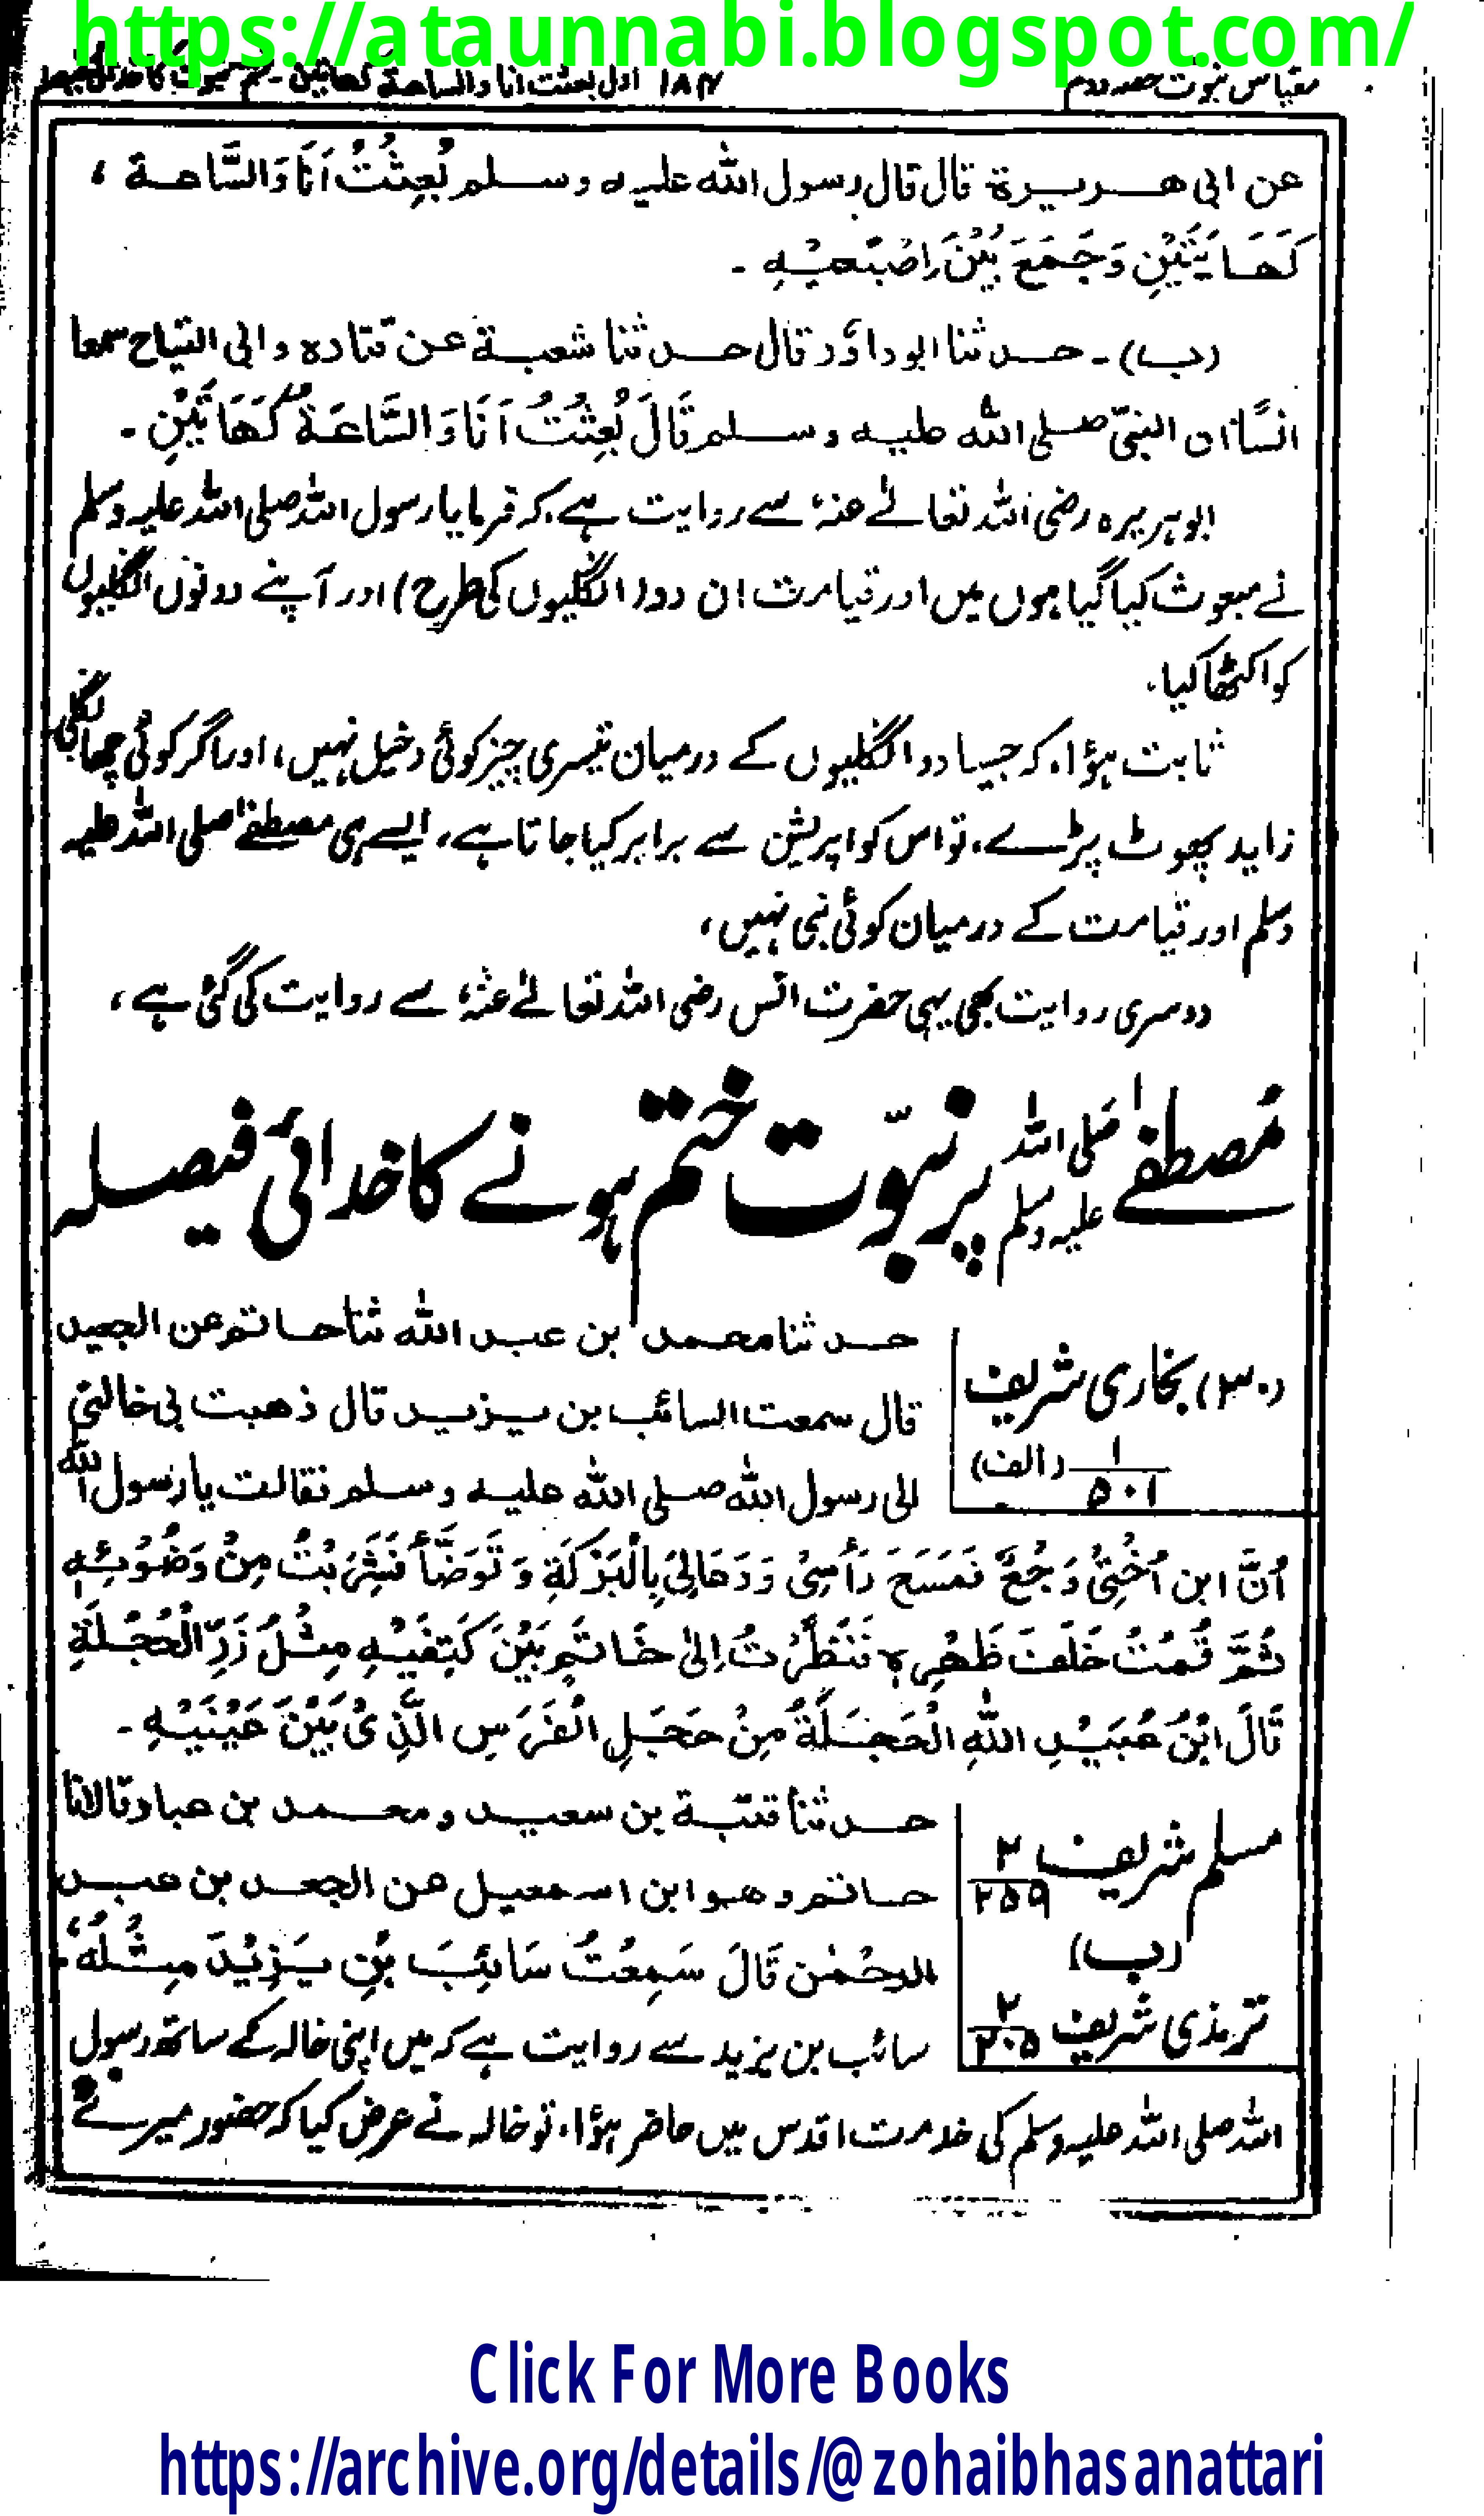 https://ataunnabi.blogspot.com/
مقیاس نبوت حصہ دوم ۱۸۴ اول بعثت انا والساعۃ کھاتین - ختم نبوت کا خدائی فیصلہ
عن ابی ھریرۃ قال قال رسول اللہ علیہ وسلم بُعِثْتُ اَنَا وَالسَّاعۃ ،
کَھَاتَیْنِ وَجَمَعَ بَیْنَ اِصْبَعَیْہِ ۔
(ب)۔ حدثنا ابوداؤد قال حدثنا شعبۃ عن قتادہ وابی التیاح سمعا
انسًا ان النبیّ صلی اللہ علیہ وسلم قَالَ بُعِثْتُ اَنَا وَالسَّاعَۃُ کَھَاتَیْنِ ۔
ابوہریرہ رضی اللہ تعالےٰ عنہٗ سے روایت ہے، کہ فرمایا رسول اللہ صلی اللہ علیہ وسلم
نے مبعوث کیا گیا ہوں میں اور قیامت ان دو (انگلیوں کی طرح) اور آپنے دونوں انگلیوں
کو اکٹھا کیا،
ثابت ہؤا، کہ جیسا دو انگلیوں کے درمیان تیسری چیز کوئی دخیل نہیں، اور اگر کوئی چھانگلی
زاید پھوٹ پڑے، تو اس کو اپریشن سے برابر کیا جاتا ہے، ایسے ہی مصطفےٰ صلی اللہ علیہ
وسلم اور قیامت کے درمیان کوئی نبی نہیں،
دوسری روایت بھی یہی حضرت انس رضی اللہ تعالےٰ عنہٗ سے روایت کی گئی ہے،
مُصطفےٰ صلی اللہ علیہ وسلم پر نبوّت ختم ہونے کا خدائی فیصلہ
(۳۰) بخاری شریف
۱/۵۰۱ (الف)
حدثنا محمد ابن عبد اللہ ثنا حاتم عن الجعید
قال سمعت السائب بن یزید قال ذھبت بی خالتی
الی رسول اللہ صلی اللہ علیہ وسلم فقالت یا رسول اللہ
اُنَّ ابن اُخْتِیْ وَجِعٌ فَمَسَحَ رَأسِیْ وَدَعَا لِیْ بِالْبَرَکَۃِ وَتَوَضَّأَ فَشَرِبْتُ مِنْ وَضُوْئِہٖ
ثُمَّ قُمْتُ خَلْفَ ظَھْرِہٖ فَنَظَرْتُ اِلیٰ خَاتَمٍ بَیْنَ کَتِفَیْہِ مِثْلَ زَرِّ الْحُجْلَۃِ
قَالَ ابْنُ عُبَیْدِ اللہِ الْحَجَلَۃُ مِنْ حَجَلِ الْفَرَسِ الَّذِیْ بَیْنَ عَیْنَیْہِ ۔
مسلم شریف ۲/۲۵۹
(ب)
ترمذی شریف ۲/۲۰۵
حدثنا قتیبۃ بن سعید و محمد بن عباد قالانا
حاتم وھو ابن اسمعیل عن الجعد بن عبد
الرحْمٰن قَالَ سَمِعْتُ سَائِبَ بْنِ یَزِیْدَ مِثْلُہٗ،
سائب بن یزید سے روایت ہے کہ میں اپنی خالہ کے ساتھ رسول
اللہ صلی اللہ علیہ وسلم کی خدمت اقدس میں حاضر ہؤا، تو خالہ نے عرض کیا کہ حضور میرے
Click For More Books
https://archive.org/details/@zohaibhasanattari